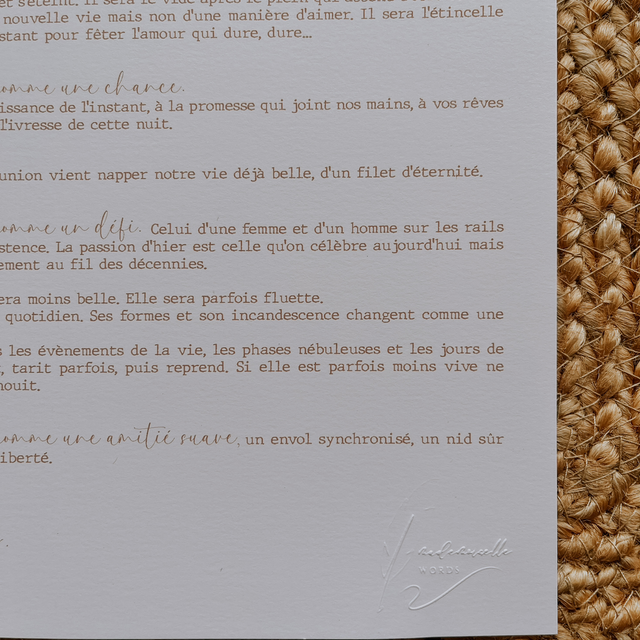 et s'éteint. Il sera le vide après le plein qui
nouvelle vie mais non d'une manière d'aimer. Il sera l'étincelle
stant pour fêter l'amour qui dure, dure...
omme une chance.
issance de l'instant, à la promesse qui joint nos mains, à vos rêves
l'ivresse de cette nuit.
union vient napper notre vie déjà belle, d'un filet d'éternité.
omme un défi. Celui d'une femme et d'un homme sur les rails
stence. La passion d'hier est celle qu'on célèbre aujourd'hui mais
ement au fil des décennies.
era moins belle. Elle sera parfois fluette.
quotidien. Ses formes et son incandescence changent comme une
s les évènements de la vie, les phases nébuleuses et les jours de
, tarit parfois, puis reprend. Si elle est parfois moins vive ne
nouit.
omme une amitié suave, un envol synchronisé, un nid sûr
iberté.
WORDS